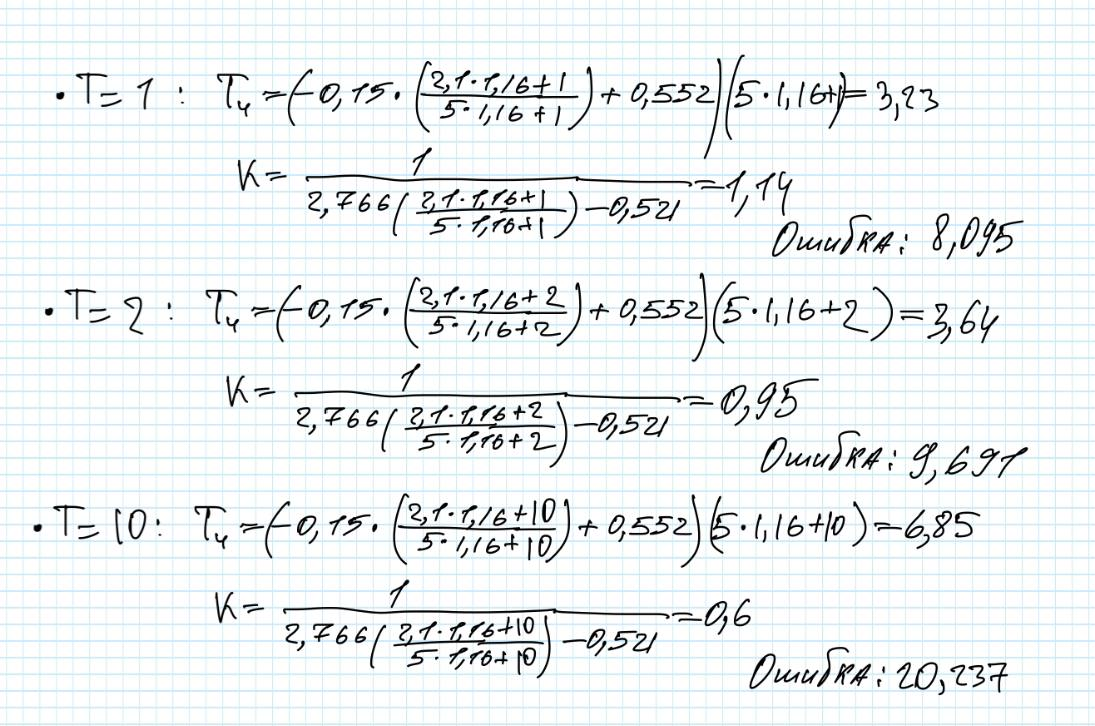 • T = 1 : Tч = (-0,15 · ((2,1·1,16+1)/(5·1,16+1)) + 0,552)(5·1,16+1) = 3,23
K = 1/(2,766((2,1·1,16+1)/(5·1,16+1)) - 0,521) = 1,14
Ошибка: 8,095
• T = 2 : Tч = (-0,15 · ((2,1·1,16+2)/(5·1,16+2)) + 0,552)(5·1,16+2) = 3,64
K = 1/(2,766((2,1·1,16+2)/(5·1,16+2)) - 0,521) = 0,95
Ошибка: 9,691
• T = 10 : Tч = (-0,15 · ((2,1·1,16+10)/(5·1,16+10)) + 0,552)(5·1,16+10) = 6,85
K = 1/(2,766((2,1·1,16+10)/(5·1,16+10)) - 0,521) = 0,6
Ошибка: 20,237